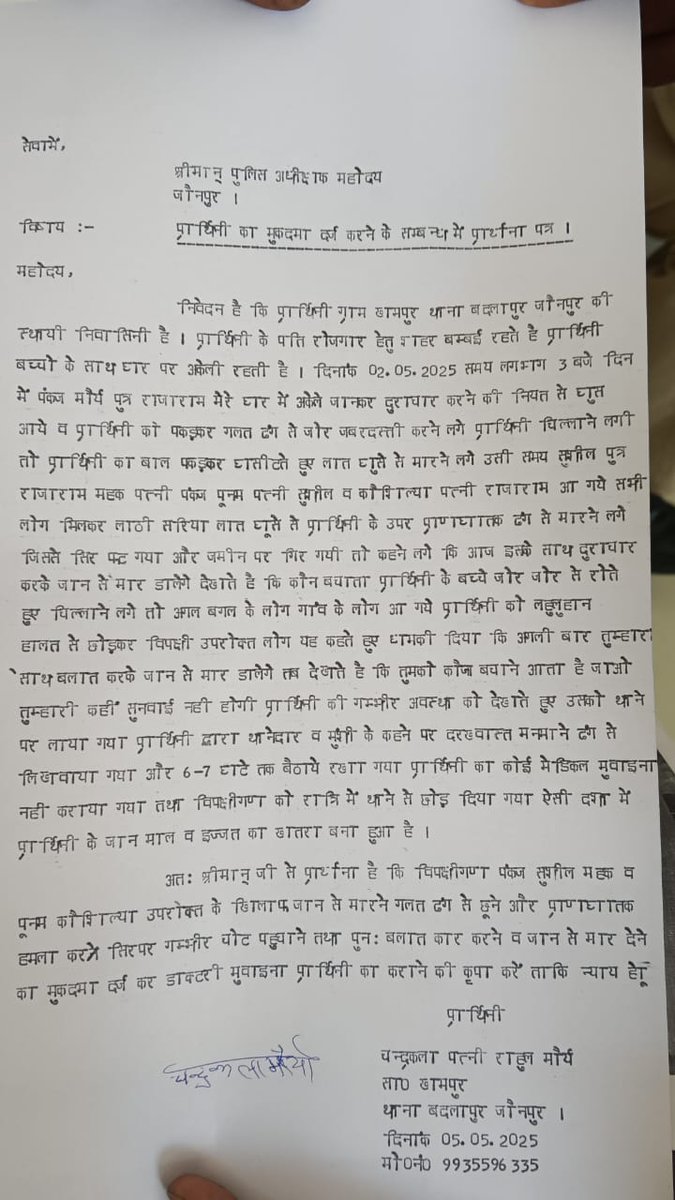 सेवामें,
श्रीमान् पुलिस अधीक्षक महोदय
जौनपुर ।
विषय :- प्रार्थिनी का मुकदमा दर्ज करने के सम्बन्ध में प्रार्थना पत्र ।
महोदय,
निवेदन है कि प्रार्थिनी ग्राम खामपुर थाना बदलापुर जौनपुर की
स्थायी निवासिनी है । प्रार्थिनी के पति रोजगार हेतु शहर बम्बई रहते है प्रार्थिनी
बच्चो के साथ घर पर अकेली रहती है । दिनांक 02.05.2025 समय लगभग 3 बजे दिन
में पंकज मौर्य पुत्र राजाराम मेरे घर में अकेले जानकर दुराचार करने की नियत से घुस
आये व प्रार्थिनी को पकड़कर गलत ढंग से जोर जबरदस्ती करने लगे प्रार्थिनी चिल्लाने लगी
तो प्रार्थिनी का बाल पकड़कर घसीटते हुए लात घुसे से मारने लगे उसी समय सुशील पुत्र
राजाराम महक पत्नी पंकज पूनम पत्नी सुशील व कौशिल्या पत्नी राजाराम आ गये सभी
लोग मिलकर लाठी सरिया लात घूसे से प्रार्थिनी के उपर प्राणघातक ढंग से मारने लगे
जिससे सिर फट गया और जमीन पर गिर गयी तो कहने लगे कि आज इसके साथ दुराचार
करके जान से मार डालेगे देखते है कि कौन बचाता प्रार्थिनी के बच्चे जोर जोर से रोते
हुए चिल्लाने लगे तो अगल बगल के लोग गांव के लोग आ गये प्रार्थिनी को लहुलुहान
हालत से छोड़कर विपक्षी उपरोक्त लोग यह कहते हुए धमकी दिया कि अगली बार तुम्हारा
साथ बलात करके जान से मार डालेगे तब देखते है कि तुमको कौन बचाने आता है जाओ
तुम्हारी कहीं सुनवाई नही होगी प्रार्थिनी की गम्भीर अवस्था को देखते हुए उसको थाने
पर लाया गया प्रार्थिनी द्वारा थानेदार व मुंशी के कहने पर दरख्वास्त मनमाने ढंग से
लिखवाया गया और 6-7 घंटे तक बैठाये रखा गया प्रार्थिनी का कोई मेडिकल मुवाइना
नही कराया गया तथा विपक्षीगण को रात्रि में थाने से छोड़ दिया गया ऐसी दशा में
प्रार्थिनी के जान माल व इज्जत का खतरा बना हुआ है ।
अतः श्रीमान् जी से प्रार्थना है कि विपक्षीगण पंकज सुशील महक व
पूनम कौशिल्या उपरोक्त के खिलाफ जान से मारने गलत ढंग से छूने और प्राणघातक
हमला करने सिरपर गम्भीर चोट पहुचाने तथा पुनः बलात कार करने व जान से मार देने
का मुकदमा दर्ज कर डाक्टरी मुवाइना प्रार्थिनी का कराने की कृपा करें ताकि न्याय हो
प्रार्थिनी
चन्द्रकला मौर्या
चन्द्रकला पत्नी राहुल मौर्य
सा0 खामपुर
थाना बदलापुर जौनपुर ।
दिनांक 05.05.2025
मो0नं0 9935596335